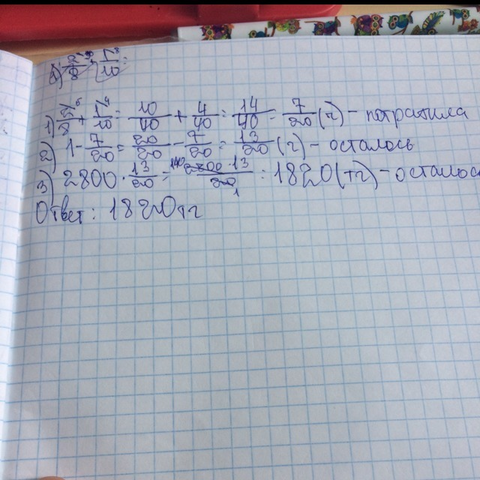 1) 2/8 + 1/10 = 10/40 + 4/40 = 14/40 = 7/20 (ч) - потратила
2) 1 - 7/20 = 20/20 - 7/20 = 13/20 (ч) - осталось
3) 2800 · 13/20 = 2800·13/20 = 1820 (тг) - осталось
Ответ: 1820 тг